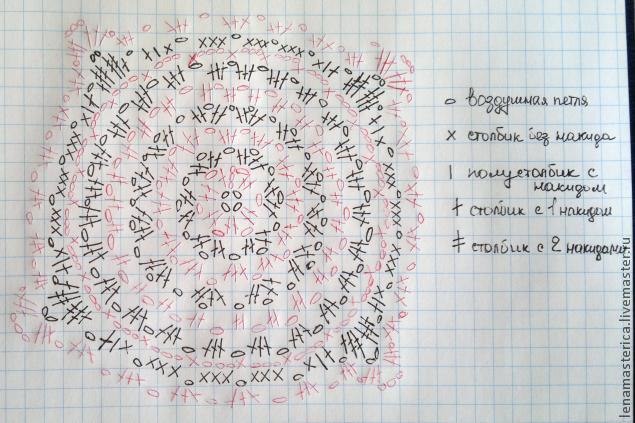 o воздушная петля
x столбик без накида
| полустолбик с
накидом
† столбик с 1 накидом
ǂ столбик с 2 накидами
lenamasterica.livemaster.ru